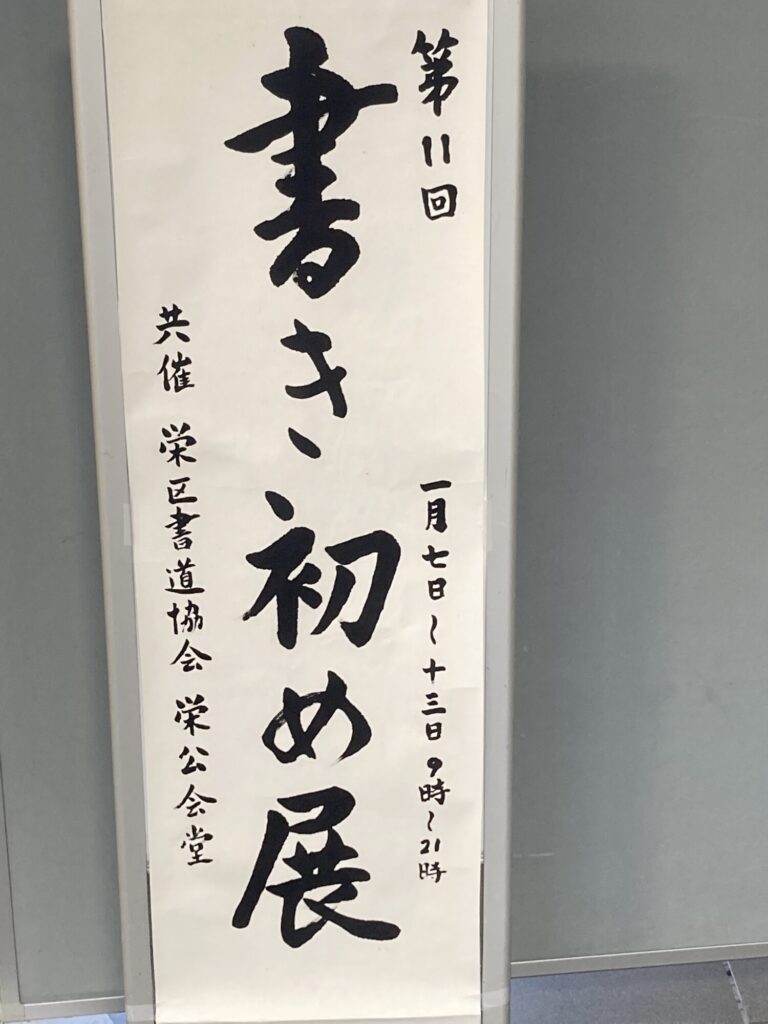 第11回
一月七日~十三日 9時~21時
書き初め展
共催 栄区書道協会 栄公会堂